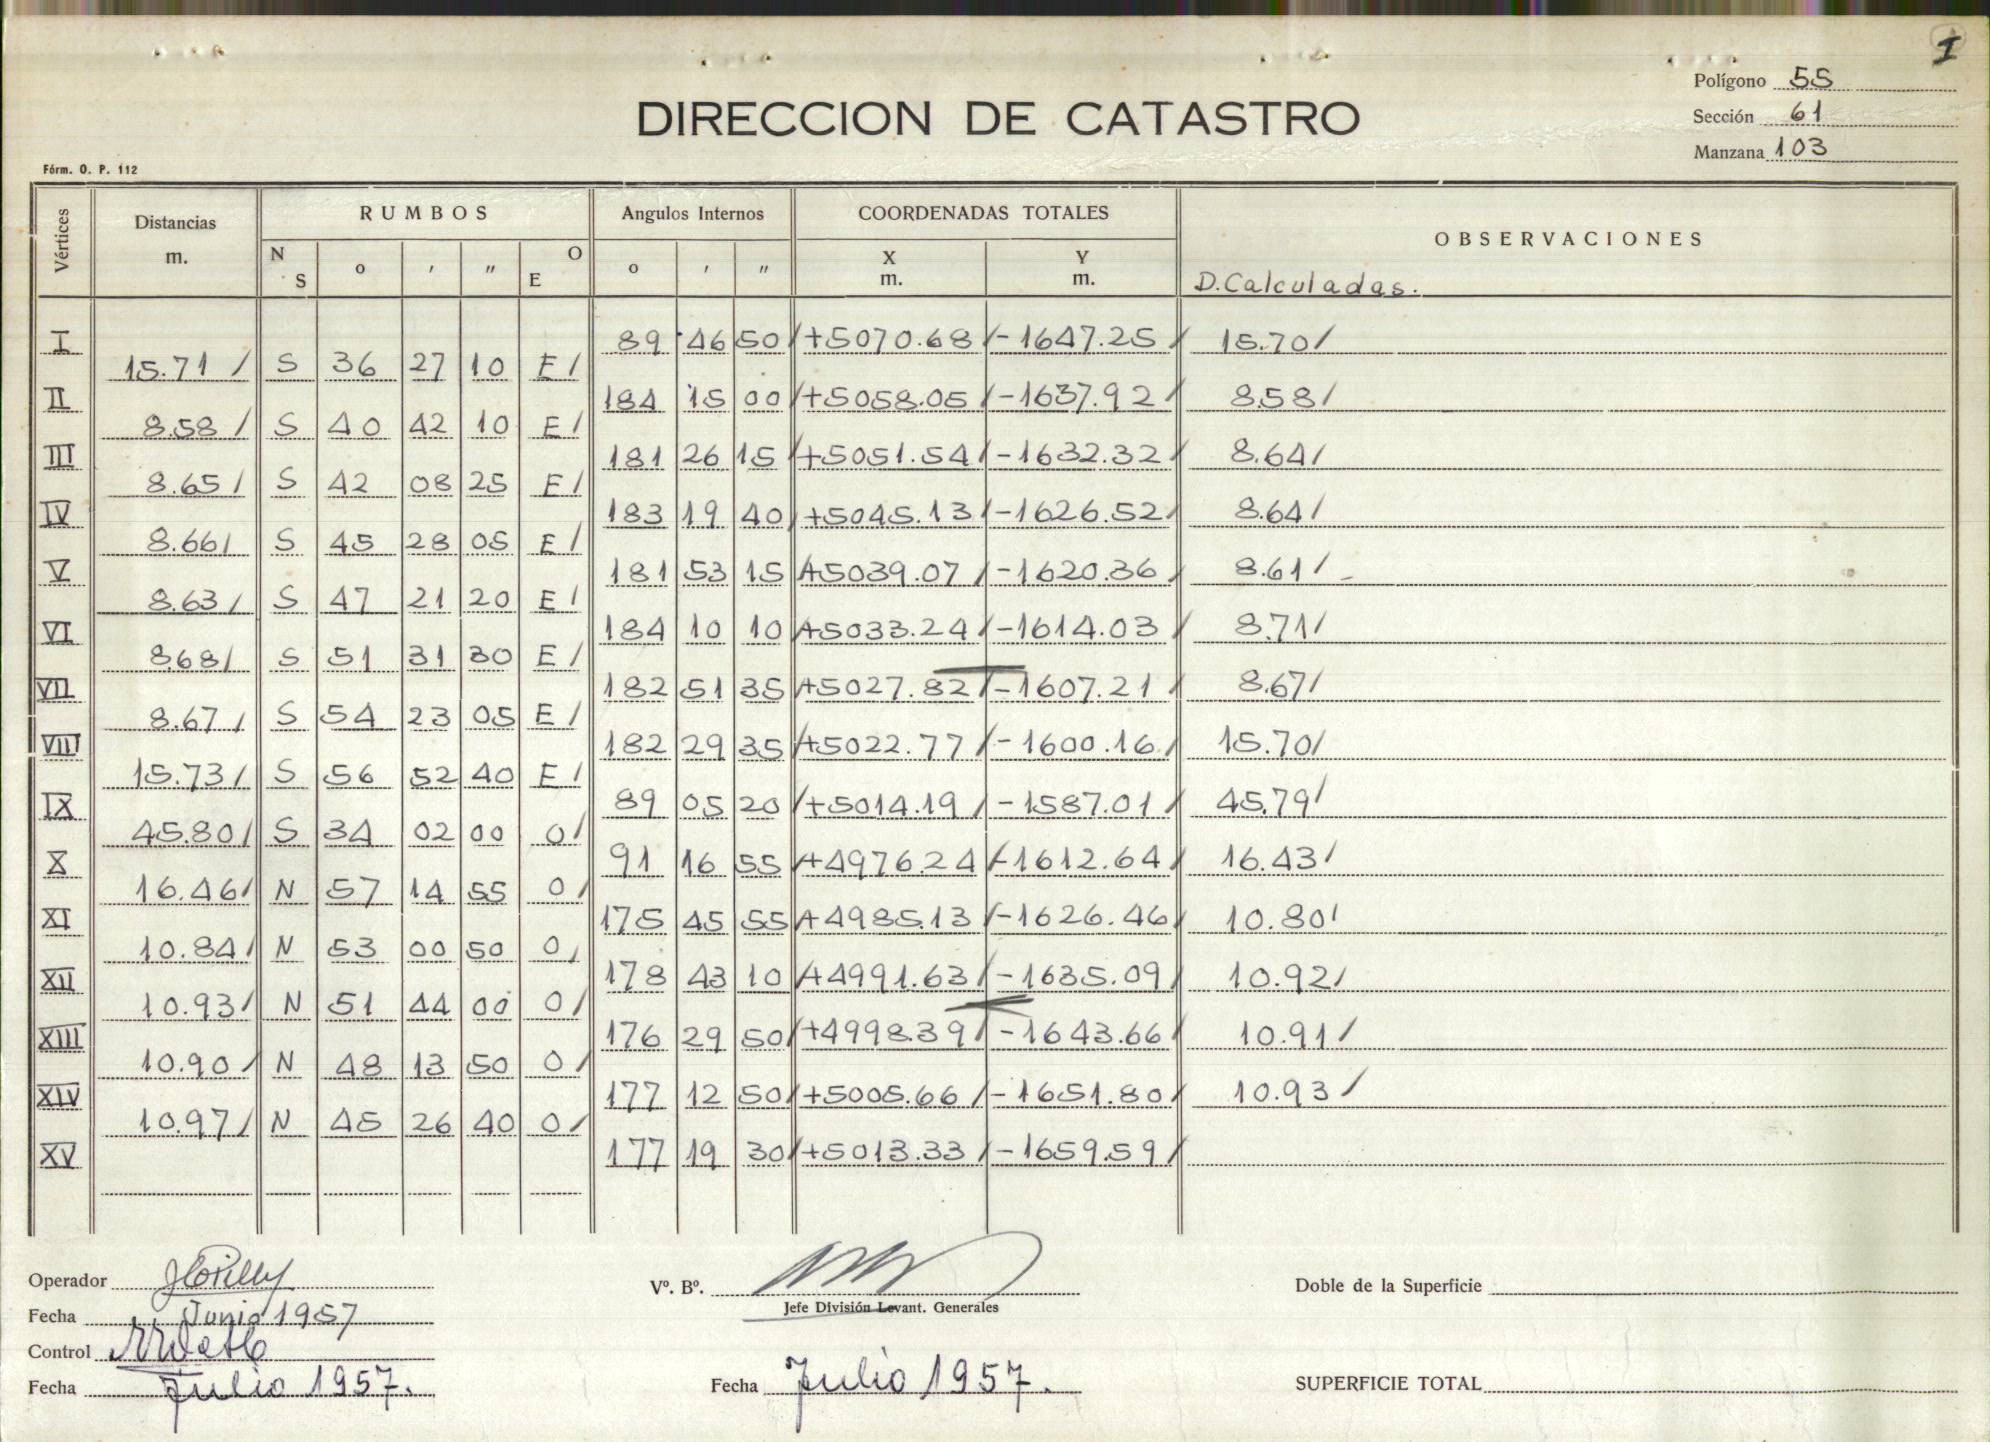 I
Polígono 55
DIRECCION DE CATASTRO
Sección 61
Manzana 103
Fórm. O. P. 112
Vértices Distancias m. RUMBOS Angulos Internos COORDENADAS TOTALES OBSERVACIONES
N S o ' " O E o ' " X m. Y m. D. Calculadas.
I 89 46 50 / +5070.68 / -1647.25 / 15.70 /
15.71 / S 36 27 10 E /
II 184 15 00 / +5058.05 / -1637.92 / 8.58 /
8.58 / S 40 42 10 E /
III 181 26 15 / +5051.54 / -1632.32 / 8.64 /
8.65 / S 42 08 25 E /
IV 183 19 40 / +5045.13 / -1626.52 / 8.64 /
8.66 / S 45 28 05 E /
V 181 53 15 / +5039.07 / -1620.36 / 8.61 /
8.63 / S 47 21 20 E /
VI 184 10 10 / +5033.24 / -1614.03 / 8.71 /
8.68 / S 51 31 30 E /
VII 182 51 35 / +5027.82 / -1607.21 / 8.67 /
8.67 / S 54 23 05 E /
VIII 182 29 35 / +5022.77 / -1600.16 / 15.70 /
15.73 / S 56 52 40 E /
IX 89 05 20 / +5014.19 / -1587.01 / 45.79 /
45.80 / S 34 02 00 O /
X 91 16 55 / +4976.24 / -1612.64 / 16.43 /
16.46 / N 57 14 55 O /
XI 175 45 55 / +4985.13 / -1626.46 / 10.80 /
10.84 / N 53 00 50 O /
XII 178 43 10 / +4991.63 / -1635.09 / 10.92 /
10.93 / N 51 44 00 O /
XIII 176 29 50 / +4998.39 / -1643.66 / 10.91 /
10.90 / N 48 13 50 O /
XIV 177 12 50 / +5005.66 / -1651.80 / 10.93 /
10.97 / N 45 26 40 O /
XV 177 19 30 / +5013.33 / -1659.59 /
Operador
Vº. Bº.
Doble de la Superficie
Jefe División Levant. Generales
Fecha Junio 1957
Control
Fecha Julio 1957.
Fecha Julio 1957.
SUPERFICIE TOTAL